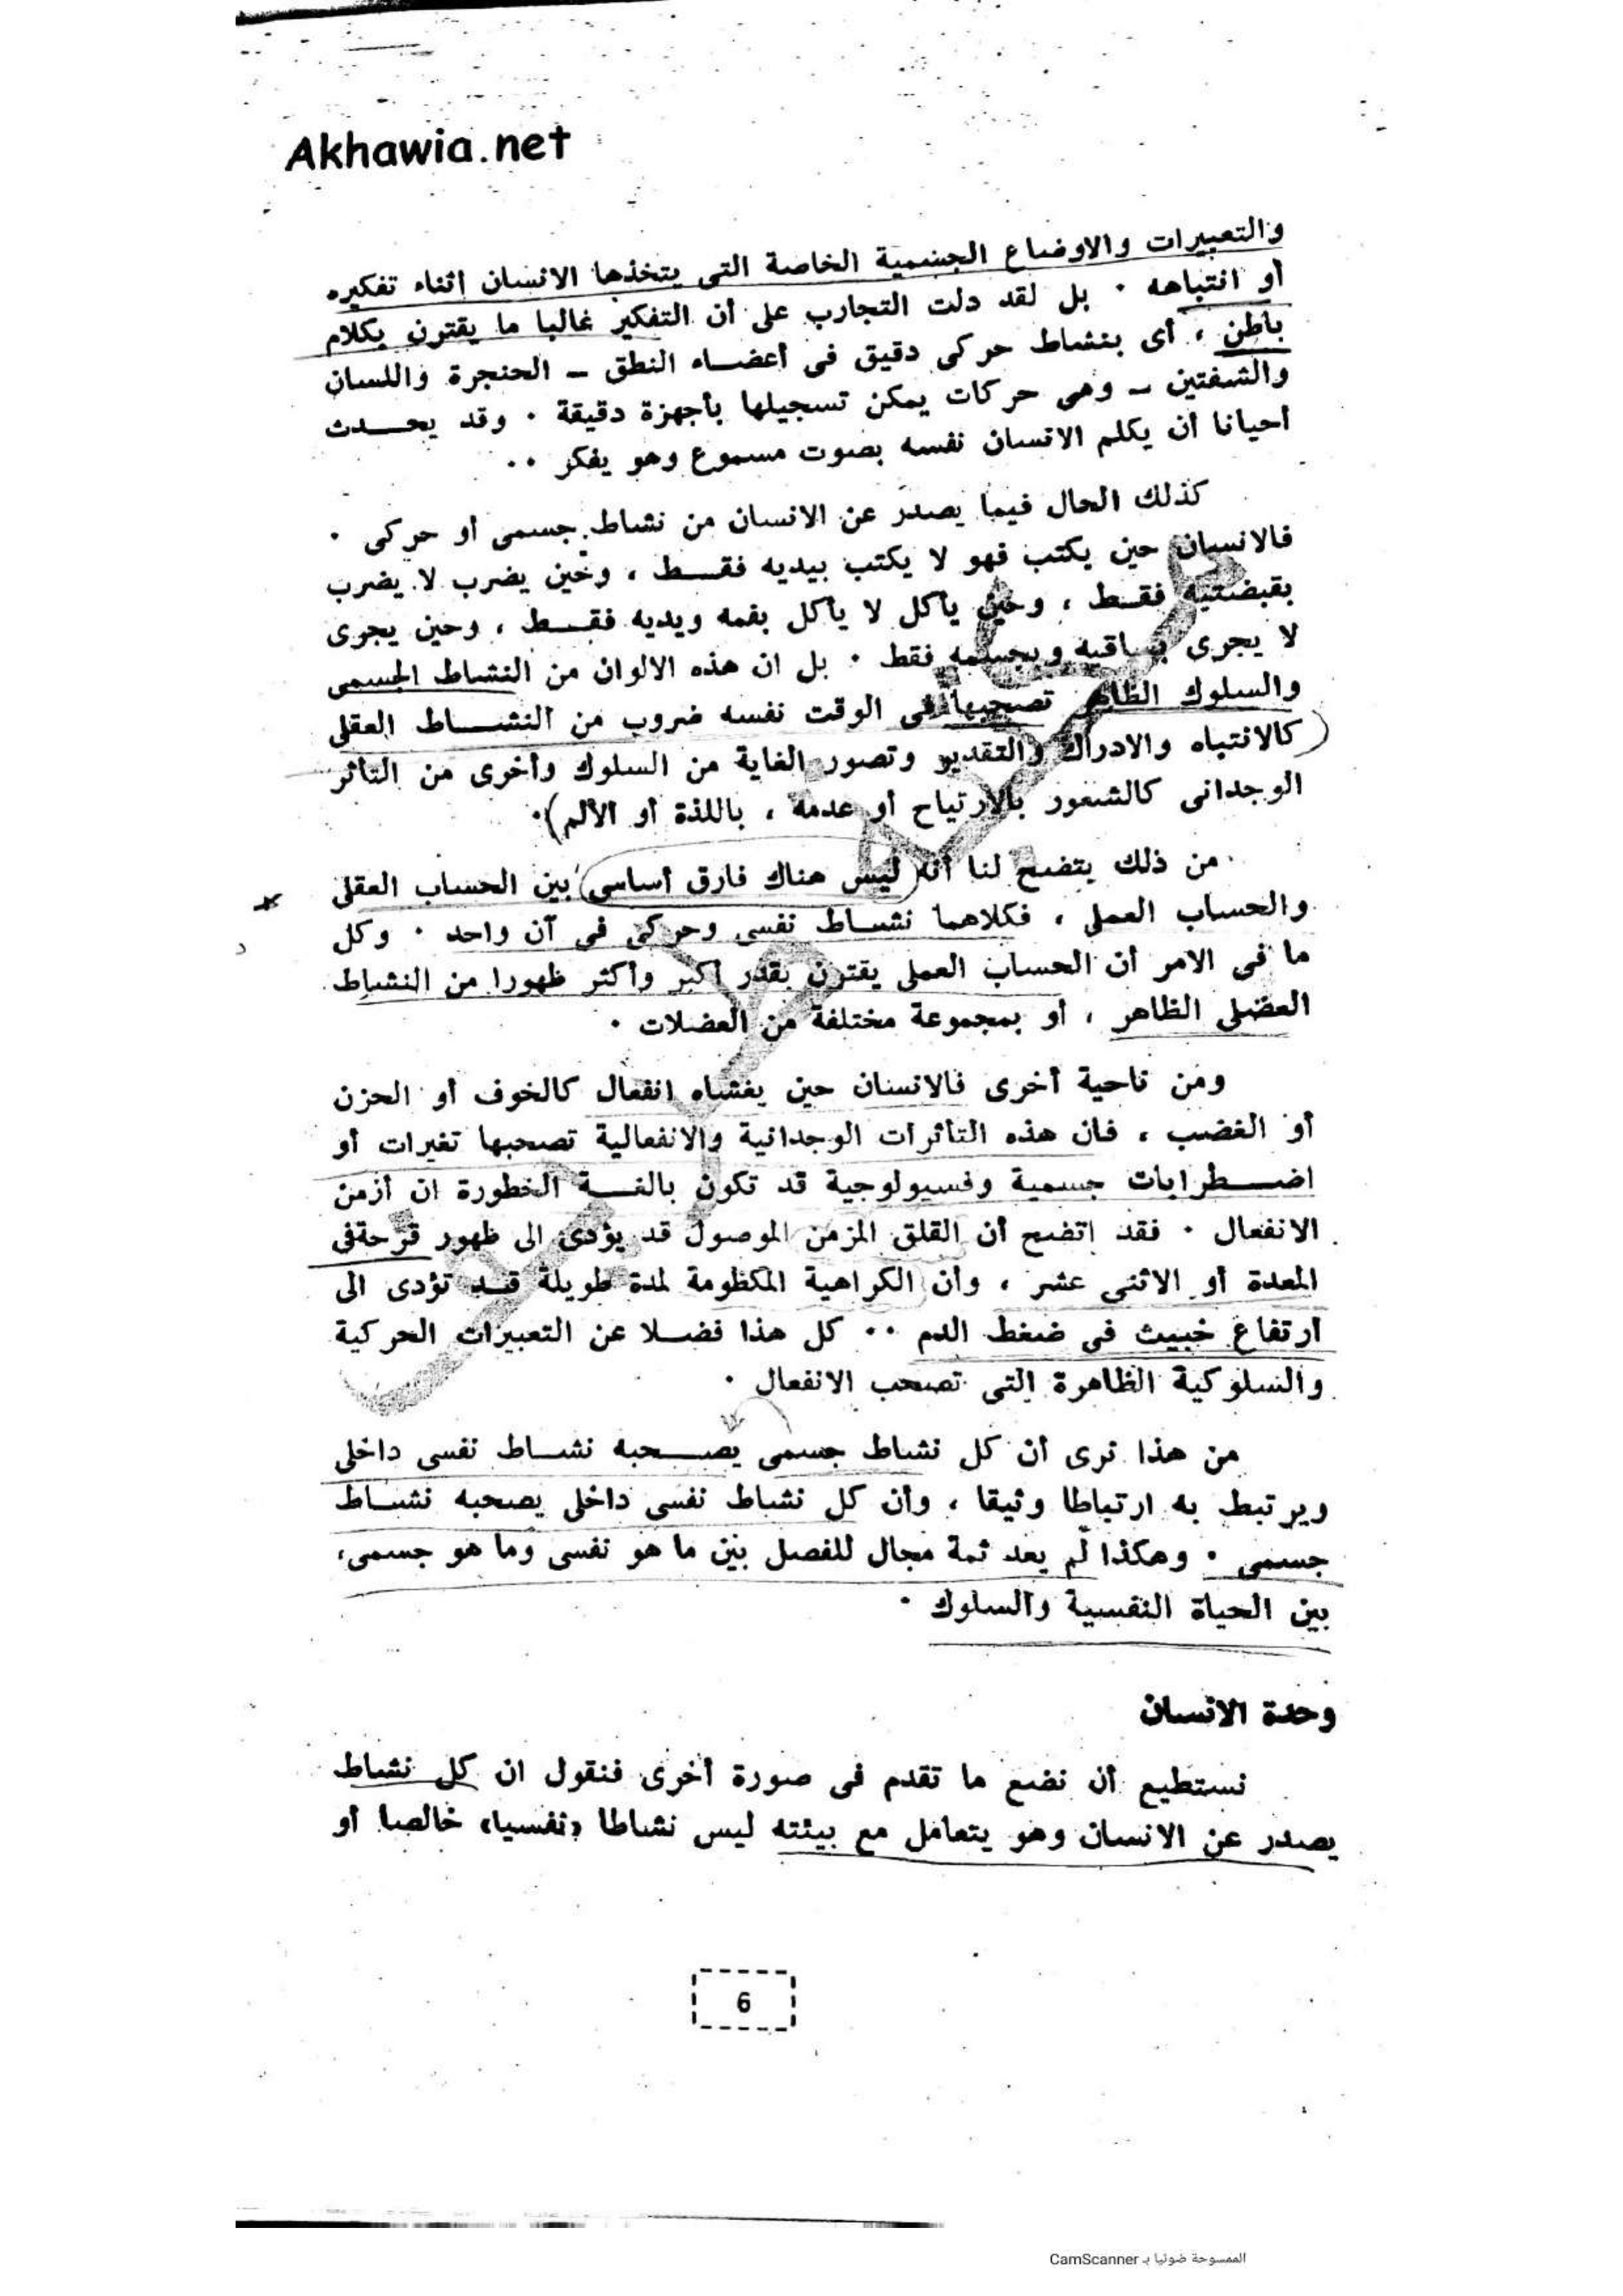 Akhawia.net
والتعبيرات والاوضاع الجسمية الخاصة التى يتخذها الانسان اثناء تفكيره
أو انتباهه . بل لقد دلت التجارب على أن التفكير غالبا ما يقترن بكلام
باطن ، أى بنشاط حركى دقيق فى أعضاء النطق – الحنجرة واللسان
والشفتين – وهى حركات يمكن تسجيلها بأجهزة دقيقة . وقد يحدث
أحيانا أن يكلم الانسان نفسه بصوت مسموع وهو يفكر ..
كذلك الحال فيما يصدر عن الانسان من نشاط جسمى أو حركى .
فالانسان حين يكتب فهو لا يكتب بيديه فقط ، وحين يضرب لا يضرب
بقبضتيه فقط ، وحين يأكل لا يأكل بفمه ويديه فقط ، وحين يجرى
لا يجرى بساقيه وبجسمه فقط . بل ان هذه الالوان من النشاط الجسمى
والسلوك الظاهر تصحبها فى الوقت نفسه ضروب من النشاط العقلى
(كالانتباه والادراك والتقدير وتصور الغاية من السلوك وأخرى من التأثر
الوجدانى كالشعور بالارتياح أو عدمه ، باللذة أو الألم).
من ذلك يتضح لنا أنه ليس هناك فارق أساسى بين الحساب العقلى
والحساب العملى ، فكلاهما نشاط نفسى وحركى فى آن واحد . وكل
ما فى الامر أن الحساب العملى يقترن بقدر أكبر وأكثر ظهورا من النشاط
العضلى الظاهر ، أو بمجموعة مختلفة من العضلات .
ومن ناحية أخرى فالانسان حين يغشاه انفعال كالخوف أو الحزن
أو الغضب ، فان هذه التأثرات الوجدانية والانفعالية تصحبها تغيرات أو
اضطرابات جسمية وفسيولوجية قد تكون بالغة الخطورة ان أزمن
الانفعال . فقد اتضح أن القلق المزمن الموصول قد يؤدى الى ظهور قرحة فى
المعدة أو الاثنى عشر ، وأن الكراهية المكظومة لمدة طويلة قد تؤدى الى
ارتفاع خبيث فى ضغط الدم .. كل هذا فضلا عن التعبيرات الحركية
والسلوكية الظاهرة التى تصحب الانفعال .
من هذا ترى أن كل نشاط جسمى يصحبه نشاط نفسى داخلى
ويرتبط به ارتباطا وثيقا ، وأن كل نشاط نفسى داخلى يصحبه نشاط
جسمى . وهكذا لم يعد ثمة مجال للفصل بين ما هو نفسى وما هو جسمى،
بين الحياة النفسية والسلوك .
وحدة الانسان
نستطيع أن نضع ما تقدم فى صورة أخرى فنقول ان كل نشاط
يصدر عن الانسان وهو يتعامل مع بيئته ليس نشاطا «نفسيا» خالصا أو
6
الممسوحة ضوئيا بـ CamScanner